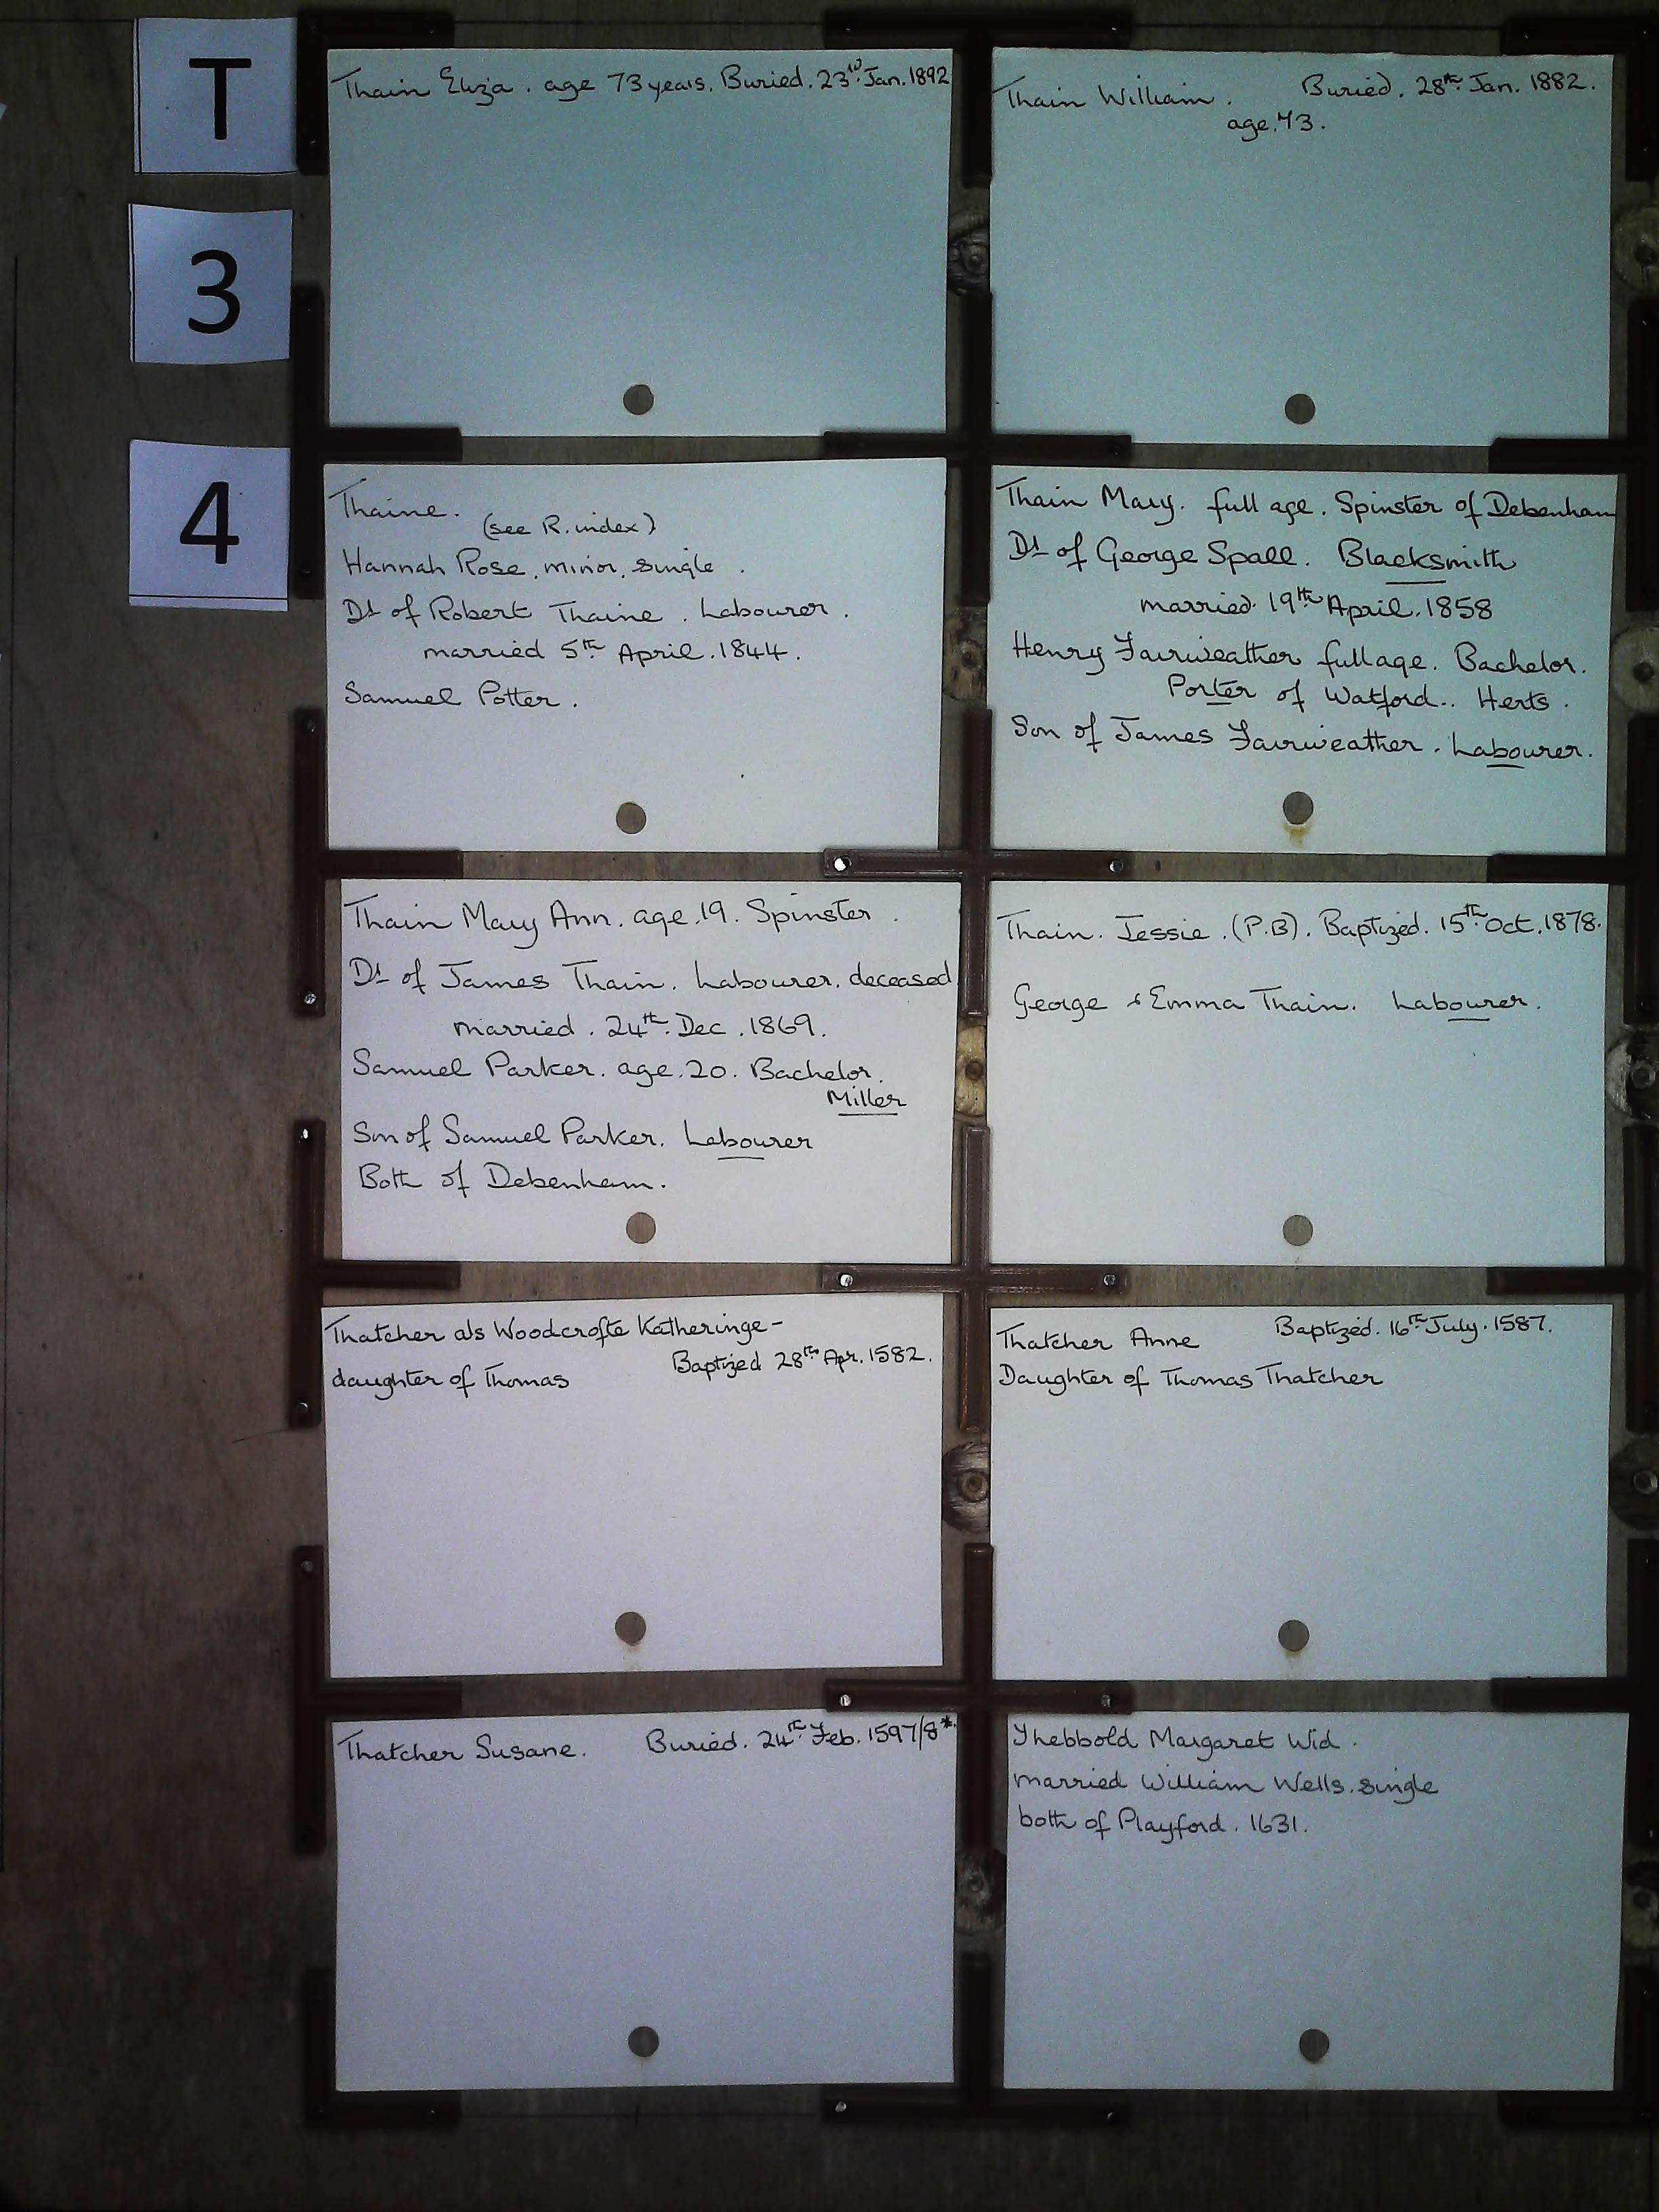 T
3
4
Thain Eliza. age 73 years. Buried. 23rd Jan. 1892
Thain William. Buried. 28th Jan. 1882.
age. 73.
Thaine.
(see R. index)
Hannah Rose. minor. single.
Dt of Robert Thaine. Labourer.
married 5th April. 1844.
Samuel Potter.
Thain Mary. full age. Spinster of Debenham
Dt of George Spall. Blacksmith
married. 19th April. 1858
Henry Fairweather full age. Bachelor.
Porter of Watford.. Herts.
Son of James Fairweather. Labourer.
Thain Mary Ann. age. 19. Spinster.
Dt of James Thain. Labourer. deceased
married. 24th Dec. 1869.
Samuel Parker. age. 20. Bachelor.
Miller
Son of Samuel Parker. Labourer
Both of Debenham.
Thain. Jessie. (P.B). Baptized. 15th Oct. 1878.
George & Emma Thain. Labourer.
Thatcher als Woodcrofte Katheringe-
daughter of Thomas Baptized 28th Apr. 1582.
Thatcher Anne Baptized. 16th July. 1587.
Daughter of Thomas Thatcher
Thatcher Susane. Buried. 24th Feb. 1597/8*
Thebbold Margaret Wid.
married William Wells. single
both of Playford. 1631.